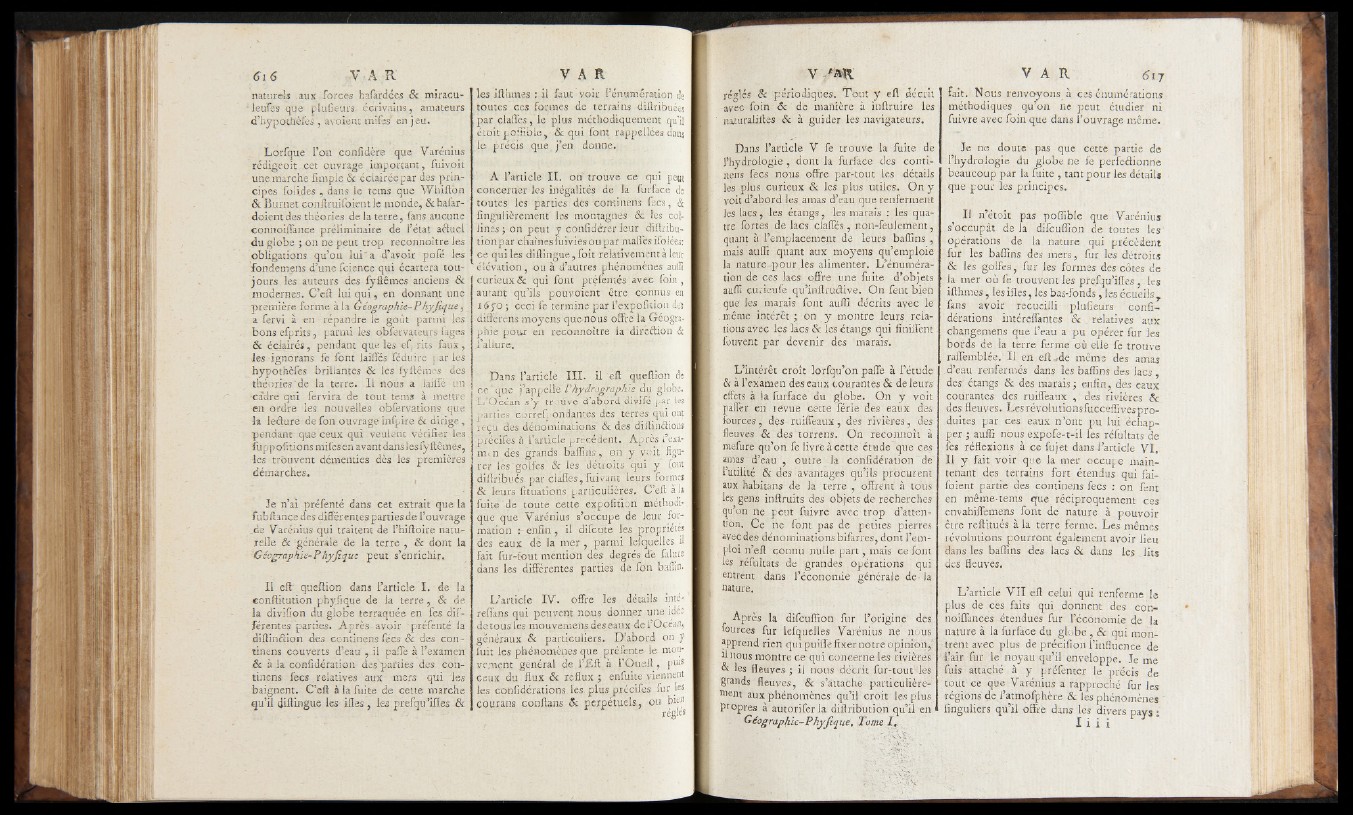 616 V A R
naturels aux forces hasardées & miracu-
leuses que plusieurs écrivains, amateurs
d'hypothèses, avoient mises en jeu.
Lorsque l'on considère que Varénius
rédigeoit cet ouvrage important, suivoit
une marche simple & éclairée par des prin-
cipes solides, dans le tems que Whiston
& Burnet construisoient le monde, & hasar-
doient des théories de la terre, sans aucune
connoissance préliminaire de l'état actuel
du globe ; on ne peut trop reconnoître les
obligations qu'on lui a d'avoir posé les
fondemens d'une science qui écartera tou-
jours les auteurs des systêmes anciens &
modernes. C'est lui qui, en donnant une
première forme à la Géographie-Physique,
a servi à en répandre le goût parmi les
bons esprits, parmi les observateurs sages
& éclairés, pendant que les esprits faux,
les ignorans se sont laissés séduire par les
hypothèses brillantes & les systêmes des
théories de la terre. Il nous a laissé un
cadre qui servira de tout tems à mettre
en ordre les nouvelles observations que
la lecture de son ouvrage inspire & dirige,
pendant que ceux qui veulent vérifier les
suppositions mises en avant dans les systêmes,
les trouvent démenties dès les premières
démarches.
Je n'ai présenté dans cet extrait que la
substance des différentes parties de l'ouvrage
de Varénius qui traitent de l'histoire natu-
relle & générale de la terre, & dont la
Géographie-Physique peut s'enrichir.
Il est question dans l'article I. de la
constitution physique de la terre, & de
la division du globe terraquée en ses dif-
férentes parties. Après avoir présenté la
distinction des continens secs & des con-
tinens couverts d'eau, il passe à l'examen
& à la considération des parties des con-
tinens secs relatives aux mers qui les
baignent. C'est à la suite de cette marche
qu'il distingue les isles, les presqu'isles &
V A R
les isthmes : il faut voir l'énumération de
toutes ces formes de terrains distribuées
par classes, le plus méthodiquement qu'il
étoit possible, & qui sont rappellées dans
le précis que j'en donne.
A l'article II. on trouve ce qui peut
concerner les inégalités de la surface de
toutes les parties des continens secs, &
singulièrement les montagnes & les col-
lines ; on peut y considérer leur distribu-
tion par chaînes suivies ou par masses isolées;
ce qui les distingue, soit relativement à leur
élévation, ou à d'autres phénomènes aussi
curieux & qui sont présentés avec soin,
autant qu'ils pouvoient être connus en
1650 ; ceci se termine par l'exposition des
différens moyens que nous offre la Géogra-
phie pour en reconnoître la direction &
l'allure.
Dans l'article III. il est question de
ce que j'appelle l'hydrographie du globe.
L'Océan s'y trouve d'abord divisé par les
parties correspondantes des terres qui ont
reçu des dénominations & des distinctions
précises à l'article précédent. Après l'exa-
men des grands bassins, on y voit figu-
rer les golfes & les détroits qui y sont
distribués par classes, suivant leurs formes
& leurs situations particulières. C'est à la
suite de toute cette exposition méthodi-
que que Varénius s'occupe de leur for-
mation : enfin, il discute les propriétés
des eaux de la mer, parmi lesquelles il
fait sur-tout mention des degrés de salure
dans les différentes parties de son bassin.
L'article IV. offre les détails inté-
ressans qui peuvent nous donner une idée
de tous les mouvemens des eaux de l'Océan,
généraux & particuliers. D'abord on y
suit les phénomènes que présente le mou-
vement général de l'Est à l'Ouest, puis
ceux du flux & reflux ; ensuite viennent
les considérations les plus précises sur les
courans constans & perpétuels, ou bien
réglés
V A R
réglés & périodiques. Tout y est décrit
avec soin & de manière à instruire les
naturalistes & à guider les navigateurs.
Dans l'article V se trouve la suite de
l'hydrologie, dont la surface des conti-
nens secs nous offre par-tout les détails
les plus curieux & les plus utiles. On y
voit d'abord les amas d'eau que renferment
les lacs, les étangs, les marais : les qua-
tre sortes de lacs classés, non-seulement,
quant à l'emplacement de leurs bassins,
mais aussi quant aux moyens qu'emploie
la nature pour les alimenter. L'énuméra-
tion de ces lacs offre une suite d'objets
aussi curieuse qu'instructive. On sent bien
que les marais sont aussi décrits avec le
même intérêt ; on y montre leurs rela-
tions avec les lacs & les étangs qui finissent
souvent par devenir des marais.
L'intérêt croît lorsqu'on passe à l'étude
& à l'examen des eaux courantes & de leurs
effets à la surface du globe. On y voit
passer en revue cette série des eaux des
sources, des ruisseaux, des rivières, des
fleuves & des torrens. On reconnoît à
mesure qu'on se livre à cette étude que ces
amas d'eau, outre la considération de
l'utilité & des avantages qu'ils procurent
aux habitans de la terre, offrent à tous
les gens instruits des objets de recherches
qu'on ne peut suivre avec trop d'atten-
tion. Ce ne sont pas de petites pierres
avec des dénominations bisarres, dont l'em-
ploi n'est connu nulle part, mais ce sont
les résultats de grandes opérations qui
entrent dans l'économie générale de la
nature.
Après la discussion sur l'origine des
sources sur lesquelles Varénius ne nous
apprend rien qui puisse fixer notre opinion,
il nous montre ce qui concerne les rivières
& les fleuves ; il nous décrit sur-tout les
grands fleuves, & s'attache particulière-
ment aux phénomènes qu'il croit les plus
propres à autoriser la distribution qu'il en
Géographie-Physique. Tome I.
V A R 617
fait. Nous renvoyons à ces énumérations
méthodiques qu'on ne peut étudier ni
suivre avec soin que dans l'ouvrage même.
Je ne doute pas que cette partie de
l'hydrologie du globe ne se perfectionne
beaucoup par la suite, tant pour les détails
que pour les principes.
Il n'étoit pas possible que Varénius
s'occupât de la discussion de toutes les
opérations de la nature qui précèdent
sur les bassins des mers, sur les détroits
& les golfes, sur les formes des côtes de
la mer où se trouvent les presqu'isles, les
isthmes, les isles, les bas-fonds, les écueils,
sans avoir recueilli plusieurs consi-
dérations intéressantes & relatives aux
changemens que l'eau a pu opérer sur les
bords de la terre ferme où elle se trouve
rassemblée. Il en est de même des amas
d'eau renfermés dans les bassins des lacs,
des étangs & des marais ; enfin, des eaux
courantes des ruisseaux, des rivières &
des fleuves. Les révolutions successives pro-
duites par ces eaux n'ont pu lui échap-
per ; aussi nous expose-t-il les résultats de
ses réflexions à ce sujet dans l'article VI.
Il y fait voir que la mer occupe main-
tenant des terrains fort étendus qui fai-
soient partie des continens secs : on sent
en même-tems que réciproquement ces
envahissemens sont de nature à pouvoir
être restitués à la terre ferme. Les mêmes
révolutions pourront également avoir lieu
dans les bassins des lacs & dans les lits
des fleuves.
L'article VII est celui qui renferme le
plus de ces faits qui donnent des con-
noissances étendues sur l'économie de la
nature à la surface du globe, & qui mon-
trent avec plus de précision l'influence de
l'air sur le noyau qu'il enveloppe. Je me
suis attaché à y présenter le précis de
tout ce que Varénius a rapproché sur les
régions de l'atmosphère & les phénomènes
singuliers qu'il offre dans les divers pays :
I i i i